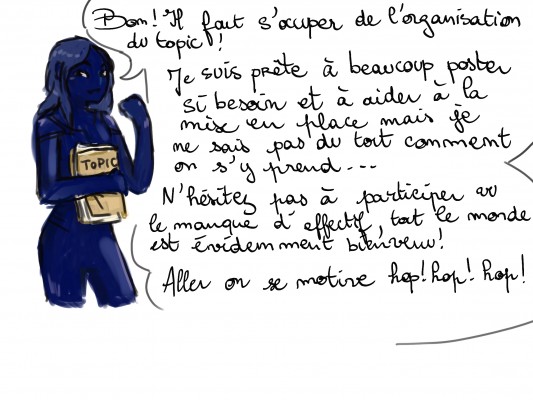 Bom! Il faut s'occuper de l'organisation
du topic!
Je suis prête à beaucoup poster
si besoin et à aider à la
mise en place mais je
ne sais pas du tout comment
on s'y prend...
N'hésitez pas à participer vu
le manque d'effectif, tout le monde
est évidemment bienvenu!
Aller on se motive hop! hop! hop!
TOPIC